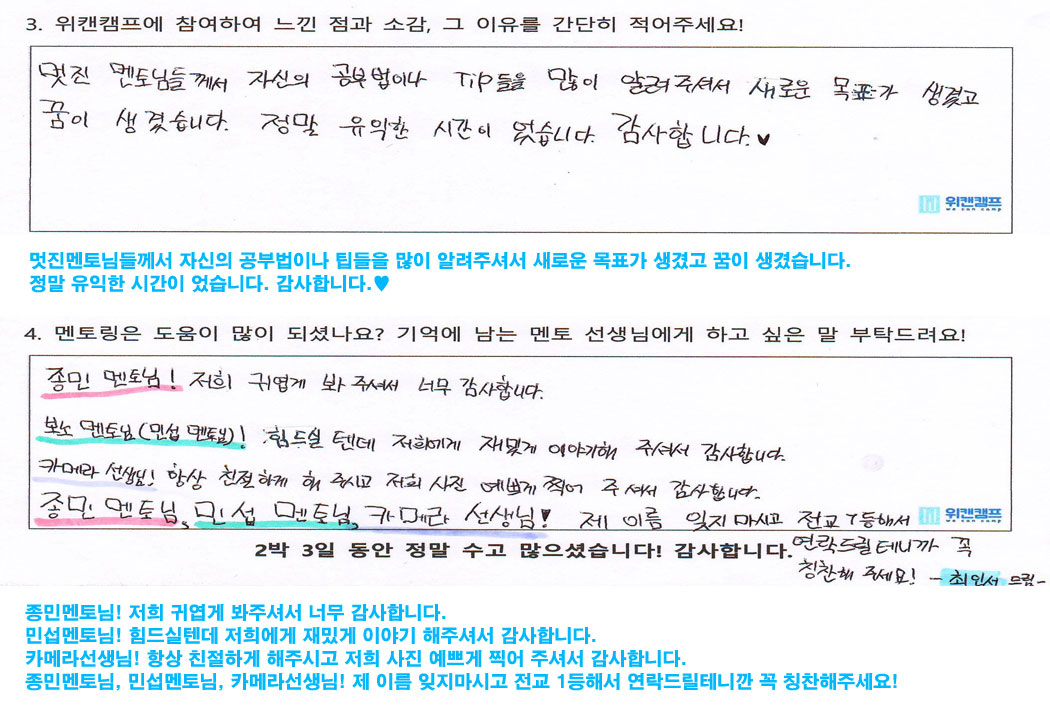 3. 위캔캠프에 참여하여 느낀 점과 소감, 그 이유를 간단히 적어주세요!
멋진 멘토님들께서 자신의 공부법이나 TiP들을 많이 알려주셔서 새로운 목표가 생겼고
꿈이 생겼습니다. 정말 유익한 시간이 었습니다. 감사합니다.♥
위캔캠프
we can camp
멋진멘토님들께서 자신의 공부법이나 팁들을 많이 알려주셔서 새로운 목표가 생겼고 꿈이 생겼습니다.
정말 유익한 시간이 었습니다. 감사합니다.♥
4. 멘토링은 도움이 많이 되셨나요? 기억에 남는 멘토 선생님에게 하고 싶은 말 부탁드려요!
종민 멘토님! 저희 귀엽게 봐 주셔서 너무 감사합니다.
보노 멘토님(민섭 멘토님)! 힘드실 텐데 저희에게 재밌게 이야기해 주셔서 감사합니다.
카메라 선생님! 항상 친절하게 해 주시고 저희 사진 예쁘게 찍어 주셔서 감사합니다.
종민 멘토님, 민섭 멘토님, 카메라 선생님! 제 이름 잊지마시고 전교 1등해서
위캔캠프
we can camp
2박 3일 동안 정말 수고 많으셨습니다! 감사합니다.
연락드릴테니까 꼭
칭찬해 주세요! - 최인서 드림-
종민멘토님! 저희 귀엽게 봐주셔서 너무 감사합니다.
민섭멘토님! 힘드실텐데 저희에게 재밌게 이야기 해주셔서 감사합니다.
카메라선생님! 항상 친절하게 해주시고 저희 사진 예쁘게 찍어 주셔서 감사합니다.
종민멘토님, 민섭멘토님, 카메라선생님! 제 이름 잊지마시고 전교 1등해서 연락드릴테니깐 꼭 칭찬해주세요!